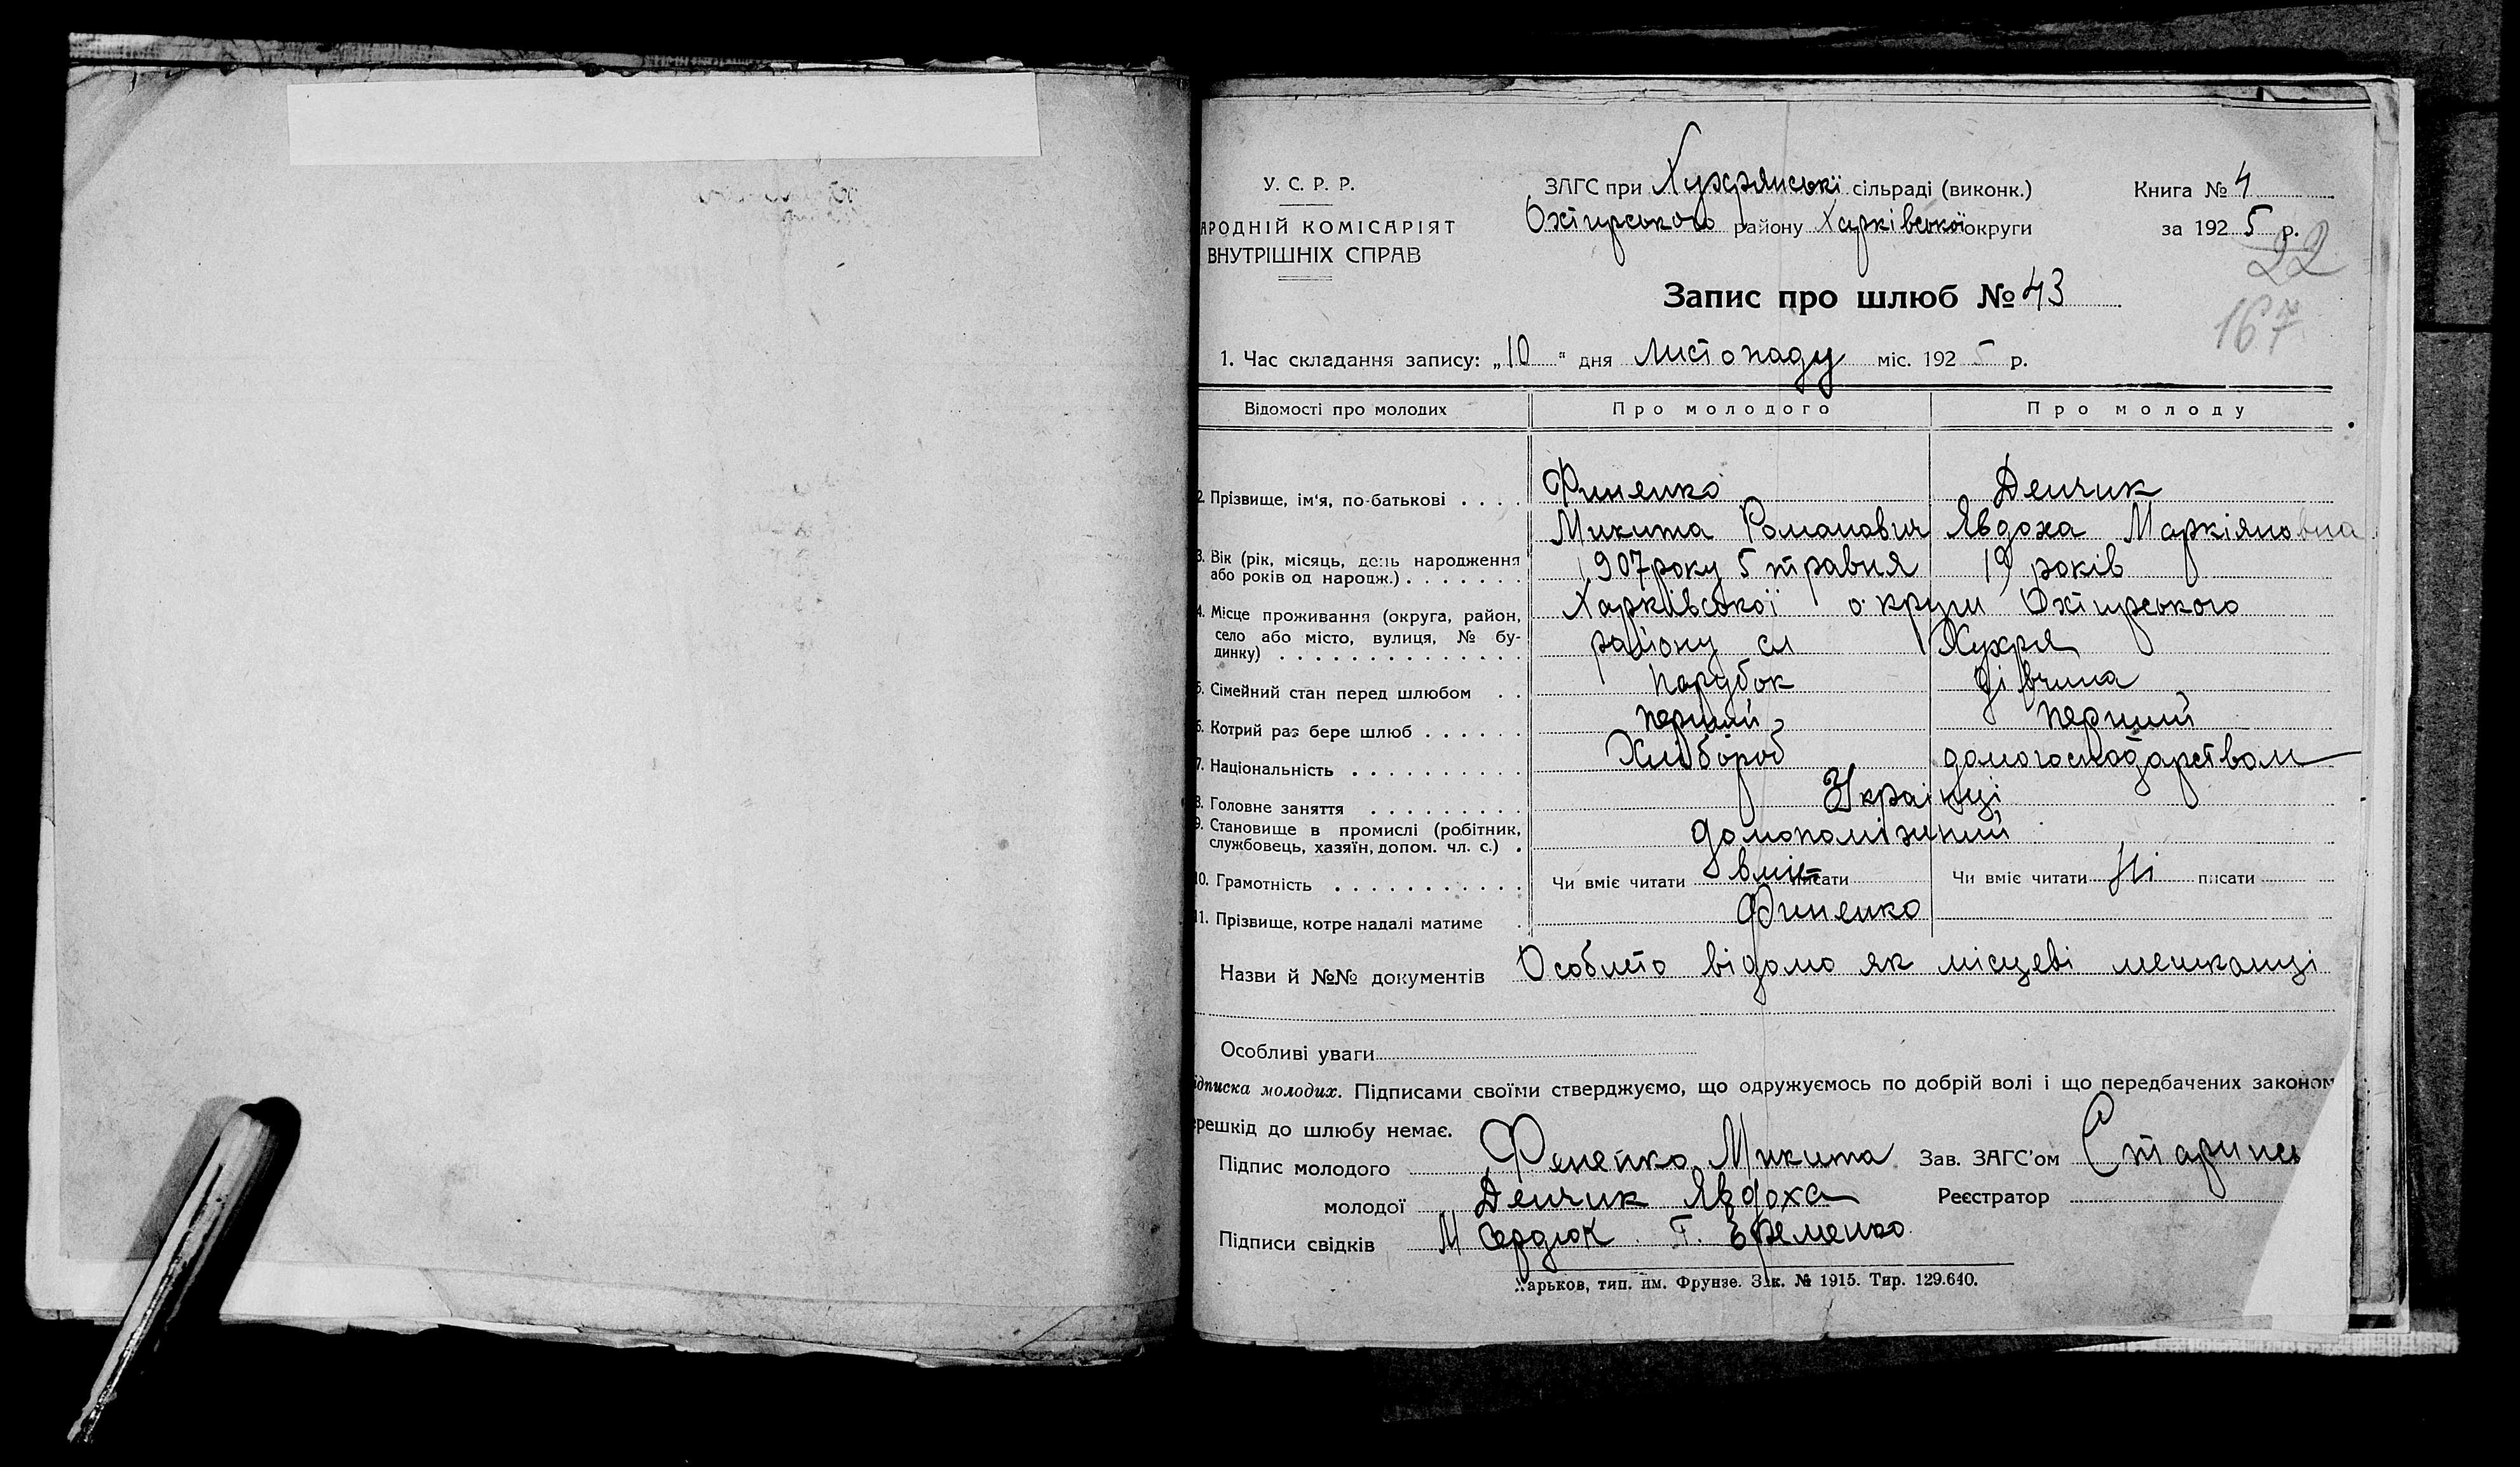 У. С. Р. Р.
АРОДНІЙ КОМІСАРІЯТ
ВНУТРІШНІХ СПРАВ
ЗАГС при Хухрянські сільраді (виконк.)
Охтирського району Харківської округи
Книга № 4
за 1925 р.
22
167
Запис про шлюб № 43
1. Час складання запису: „10“ дня листопаду міс. 1925 р.
Відомості про молодих Про молодого Про молоду
2. Прізвище, ім'я, по-батькові . . . . Финенко Денчик
Микита Романович Явдоха Маркіяновна
3. Вік (рік, місяць, день народження
або років од народж.) . . . . . . . 1907 року 5 травня 19 років
4. Місце проживання (округа, район, Харківської округи Охтирського
село або місто, вулиця, № бу-
динку) . . . . . . . . . . . . . . району сл Хухря
5. Сімейний стан перед шлюбом . . Парубок дівчина
6. Котрий раз бере шлюб . . . . . . перший перший
7. Національність . . . . . . . . . . Хлібороб домогосподарством
8. Головне заняття . . . . . . . . . Українці
9. Становище в промислі (робітник,
службовець, хазяїн, допом. чл. с.) . допоміжний
10. Грамотність . . . . . . . . . . . Чи вміє читати вміє писати Чи вміє читати Ні писати
11. Прізвище, котре надалі матиме . Финенко
Назви й №№ документів Особисто відомо як місцеві мешканці
Особливі уваги
ідписка молодих. Підписами своїми стверджуємо, що одружуємось по добрій волі і що передбачених законом
ерешкід до шлюбу немає.
Підпис молодого Фененко Микита Зав. ЗАГС'ом
молодої Денчик Явдоха Реєстратор
Підписи свідків М Сердюк. Г. Ефеменко
Харьков, тип. им. Фрунзе. Зак. № 1915. Тир. 129.640.